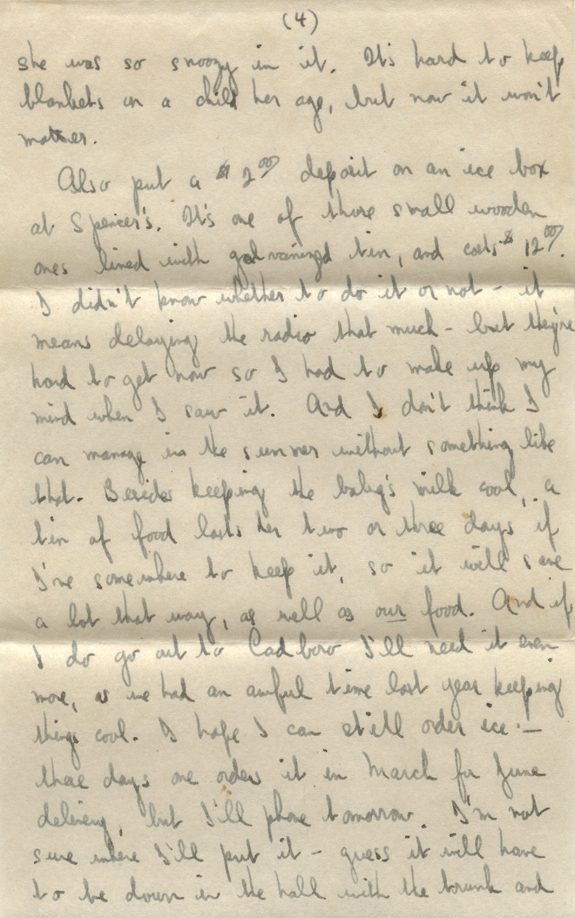 (4)
she was so snoozy in it. It's hard to keep
blankets on a child her age, but now it won't
matter.
Also put a $2.00 deposit on an ice box
at Spencer's. It's one of those small wooden
ones lined with galvanized tin, and costs $12.00.
I didn't know whether to do it or not - it
means delaying the radio that much - but they're
hard to get now so I had to make up my
mind when I saw it. And I don't think I
can manage in the summer without something like
that. Besides keeping the baby's milk cool, a
tin of food lasts her two or three days if
I've somewhere to keep it, so it will save
a lot that way, as well as our food. And if
I do go out to Cadboro I'll need it even
more, as we had an awful time last year keeping
things cool. I hope I can still order ice -
these days one orders it in March for June
delivery, but I'll phone tomorrow. I'm not
sure where I'll put it - guess it will have
to be down in the hall with the trunk and